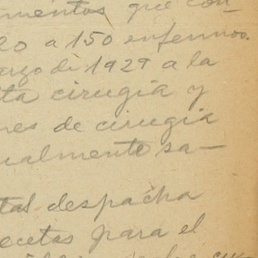 mentos que con-
20 a 150 enfermos.
arzo di 1929 a la
ta cirugia y
nes de cirugia
ualmente sa-
tal despacha
ecetas para el